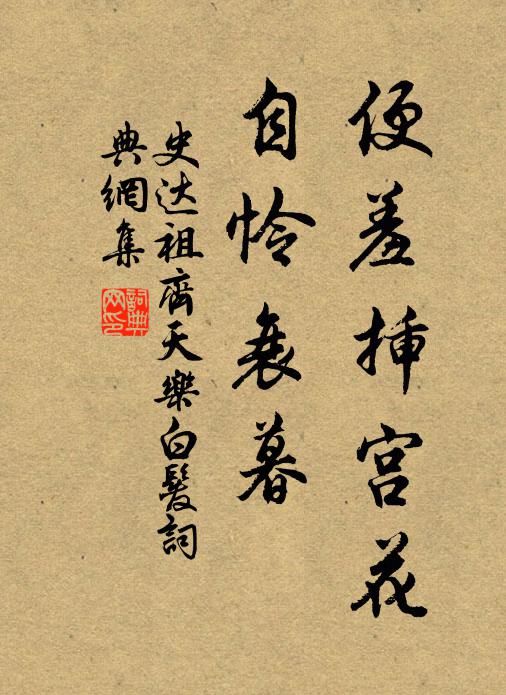 便羞挿宫花
自怜衰暮
史达祖齊天樂白髮詞
典網集
詞典
网印